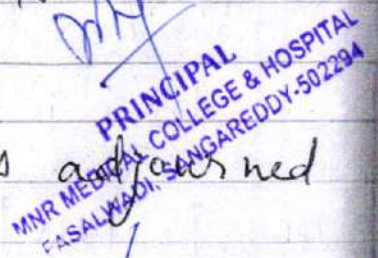 PRINCIPAL
MNR MEDICAL COLLEGE & HOSPITAL
FASALWADI, SANGAREDDY-502294
s adjourned